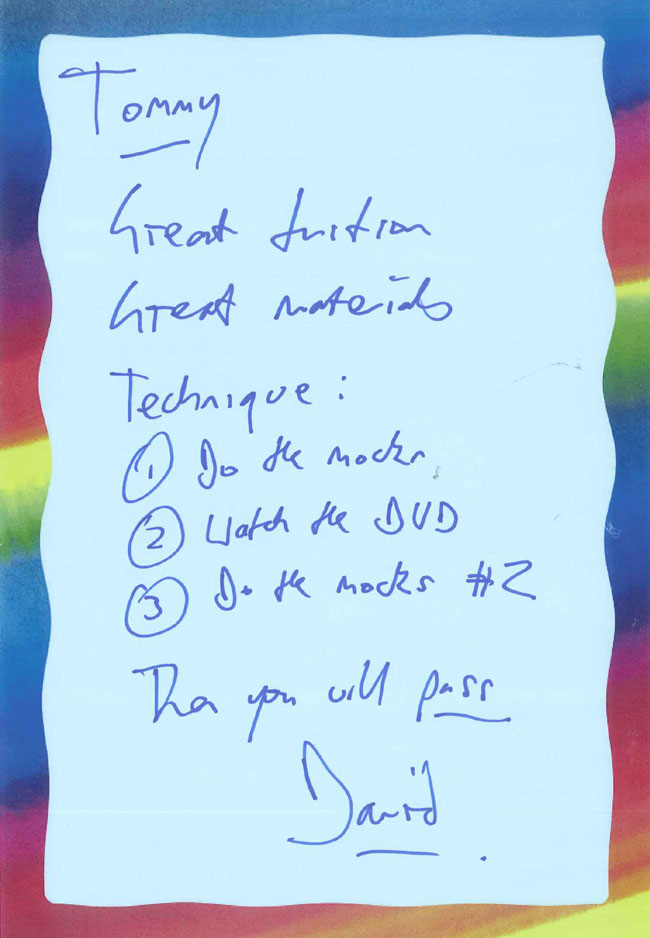 Tommy
Great tuition
Great materials
Technique :
1 Do the mocks
2 Watch the DVD
3 Do the mocks #2
Then you will pass
David